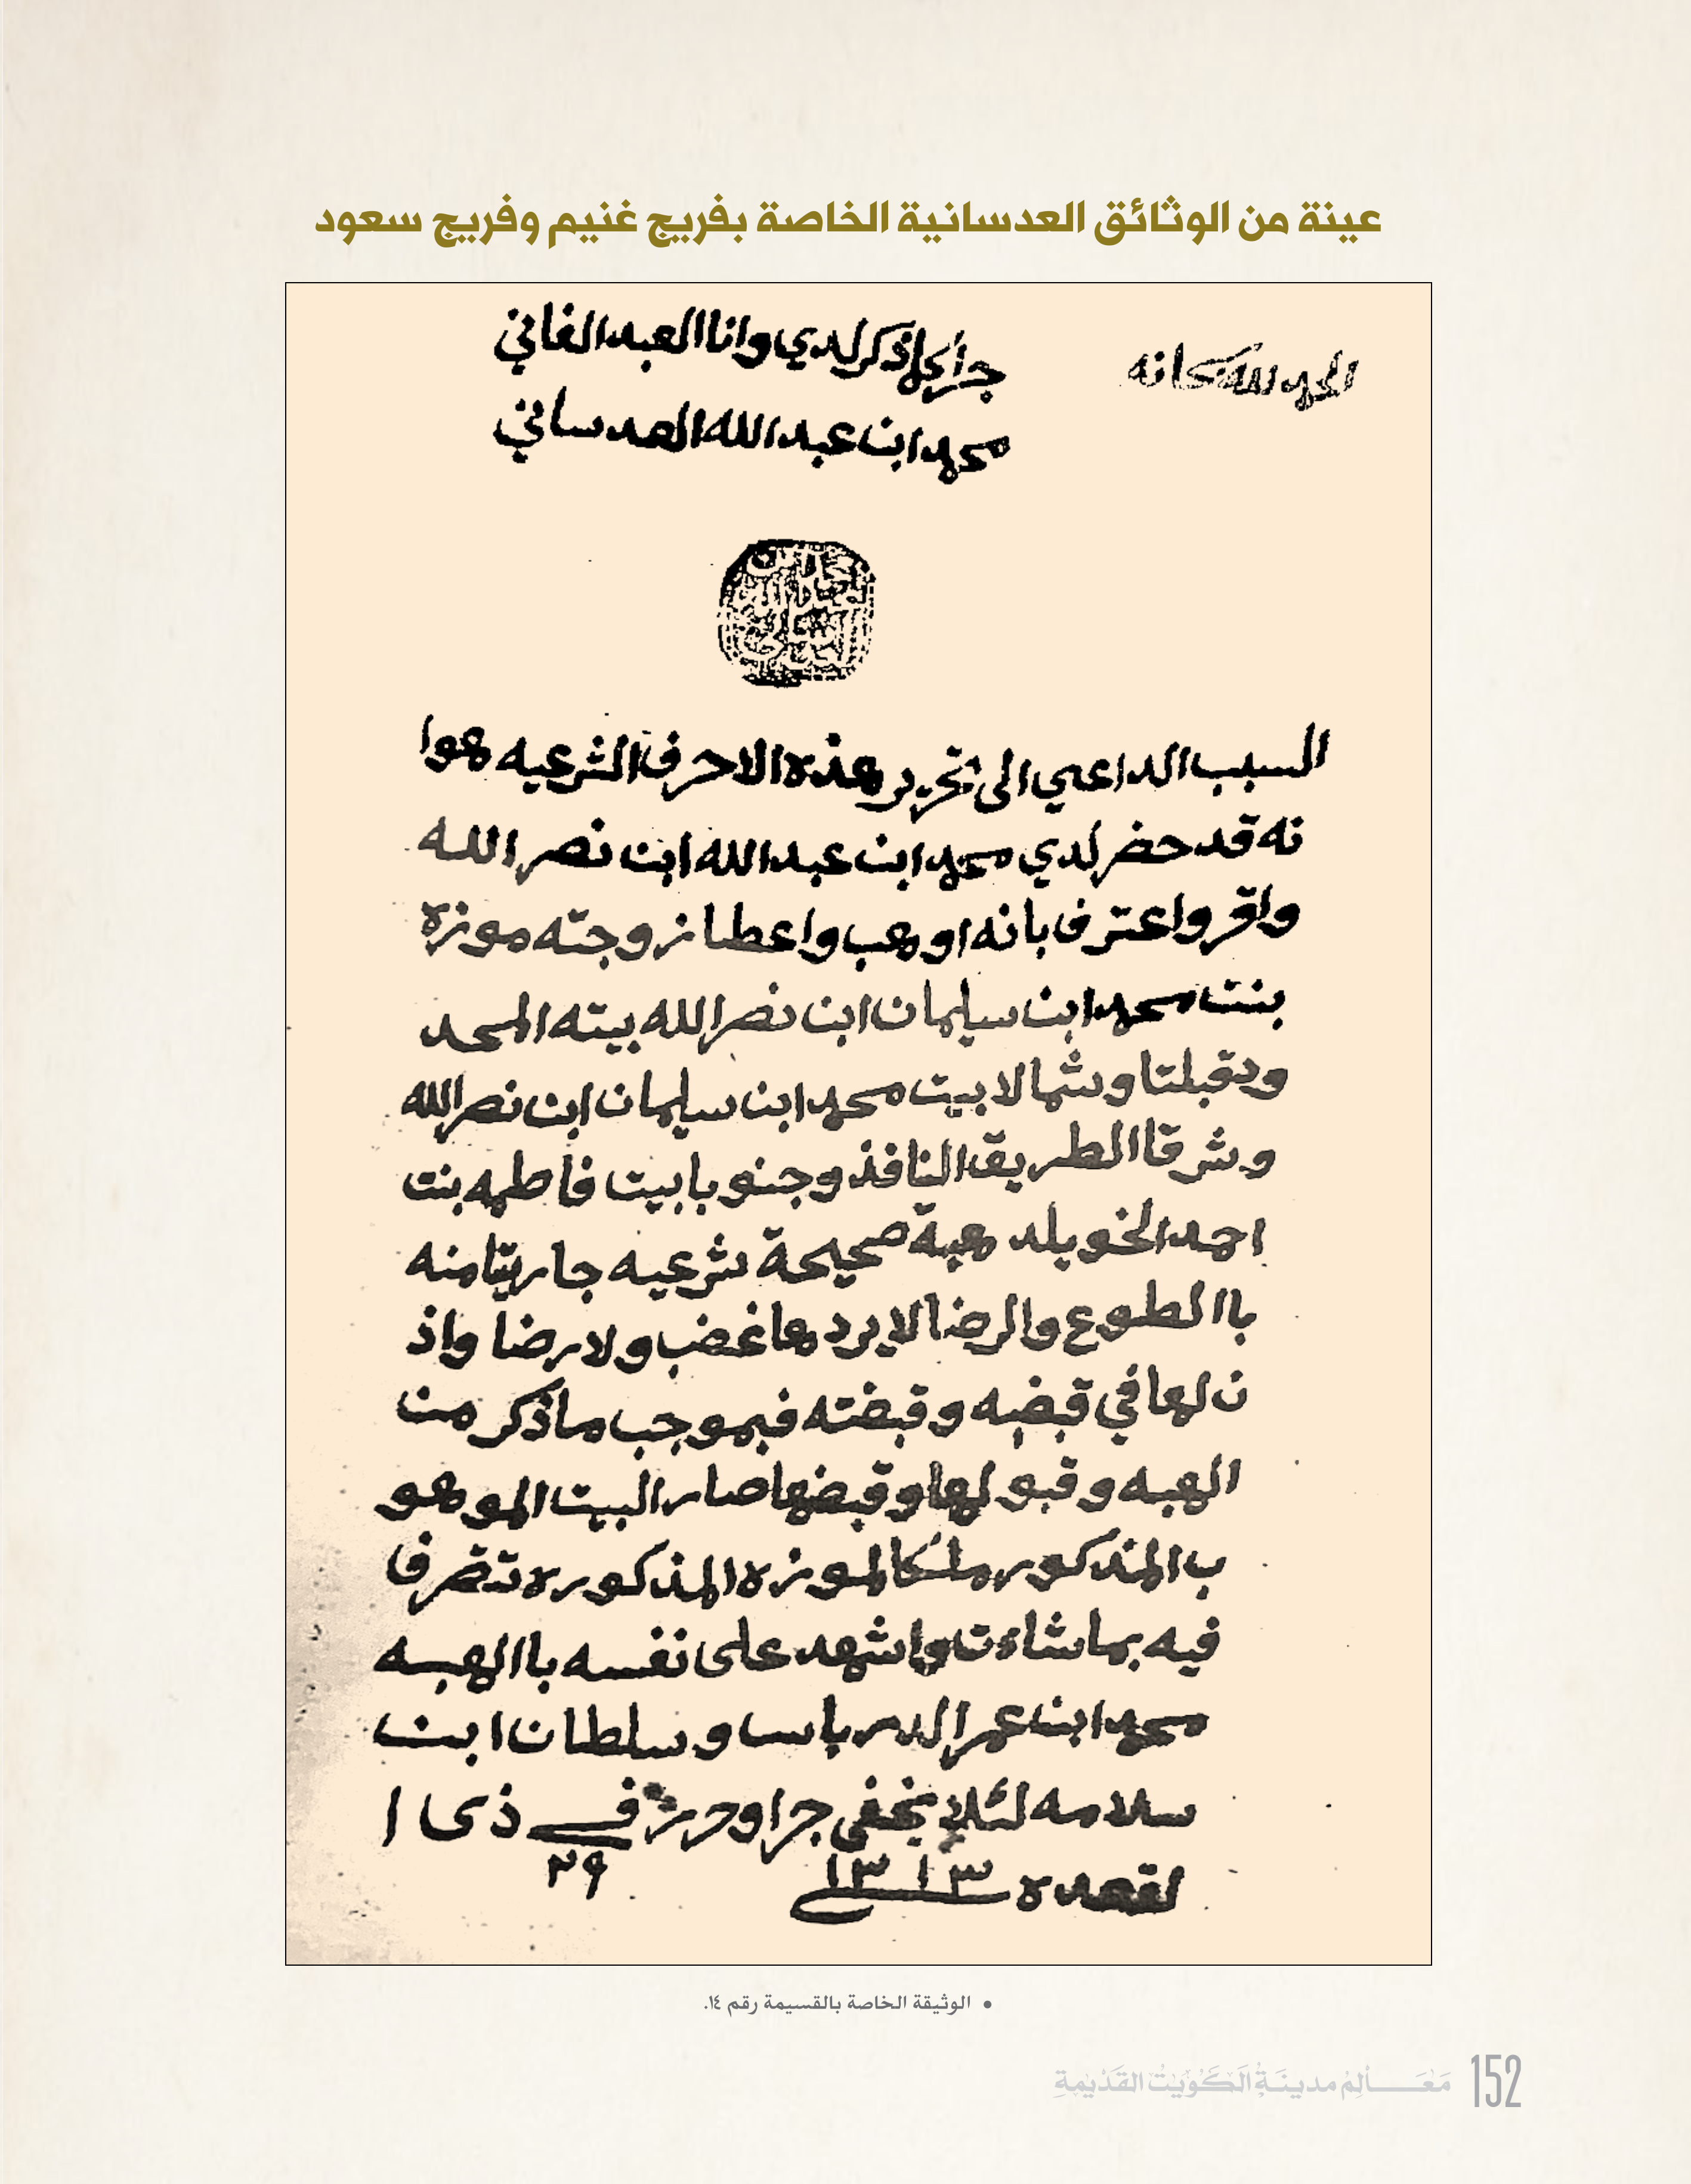 عينة من الوثائق العدسانية الخاصة بفريج غنيم وفريج سعود
الحمد لله سبحانه
جرا كما ذكر لدي وانا العبد الفاني
محمد ابن عبدالله العدساني
السبب الداعي الى تحرير هذه الاحرف الشرعيه هوا
نه قد حضر لدي محمد ابن عبدالله ابن نصر الله
واقر واعترف بانه اوهب واعطا زوجته موزة
بنت محمد ابن سليمان ابن نصر الله بيته المحد
ود قبلتا وشمالا بيت محمد ابن سليمان ابن نصر الله
وشرقا الطريق النافذ وجنوبا بيت فاطمه بنت
احمد الخويلد هبة صحيحة شرعيه جاريتا منه
باالطوع والرضا لا يردها غضب ولا رضا واذ
ن لها في قبضه وقبضته فبموجب ما ذكر من
الهبه وقبولها وقبضها صار البيت الموهو
ب المذكور ملكا لموزه المذكوره تتصرف
فيه بما شاءت واشهد على نفسه باالهبه
محمد ابن عمر الدرباس وسلطان ابن
سلامه لئلا يخفى جرا وحرر في ذي ا
لقعده ١٣١٣ ٢٩
• الوثيقة الخاصة بالقسيمة رقم ١٤.
152 مَعَالِمُ مدينَةِ الكُوَيْتِ القَدْيمةِ